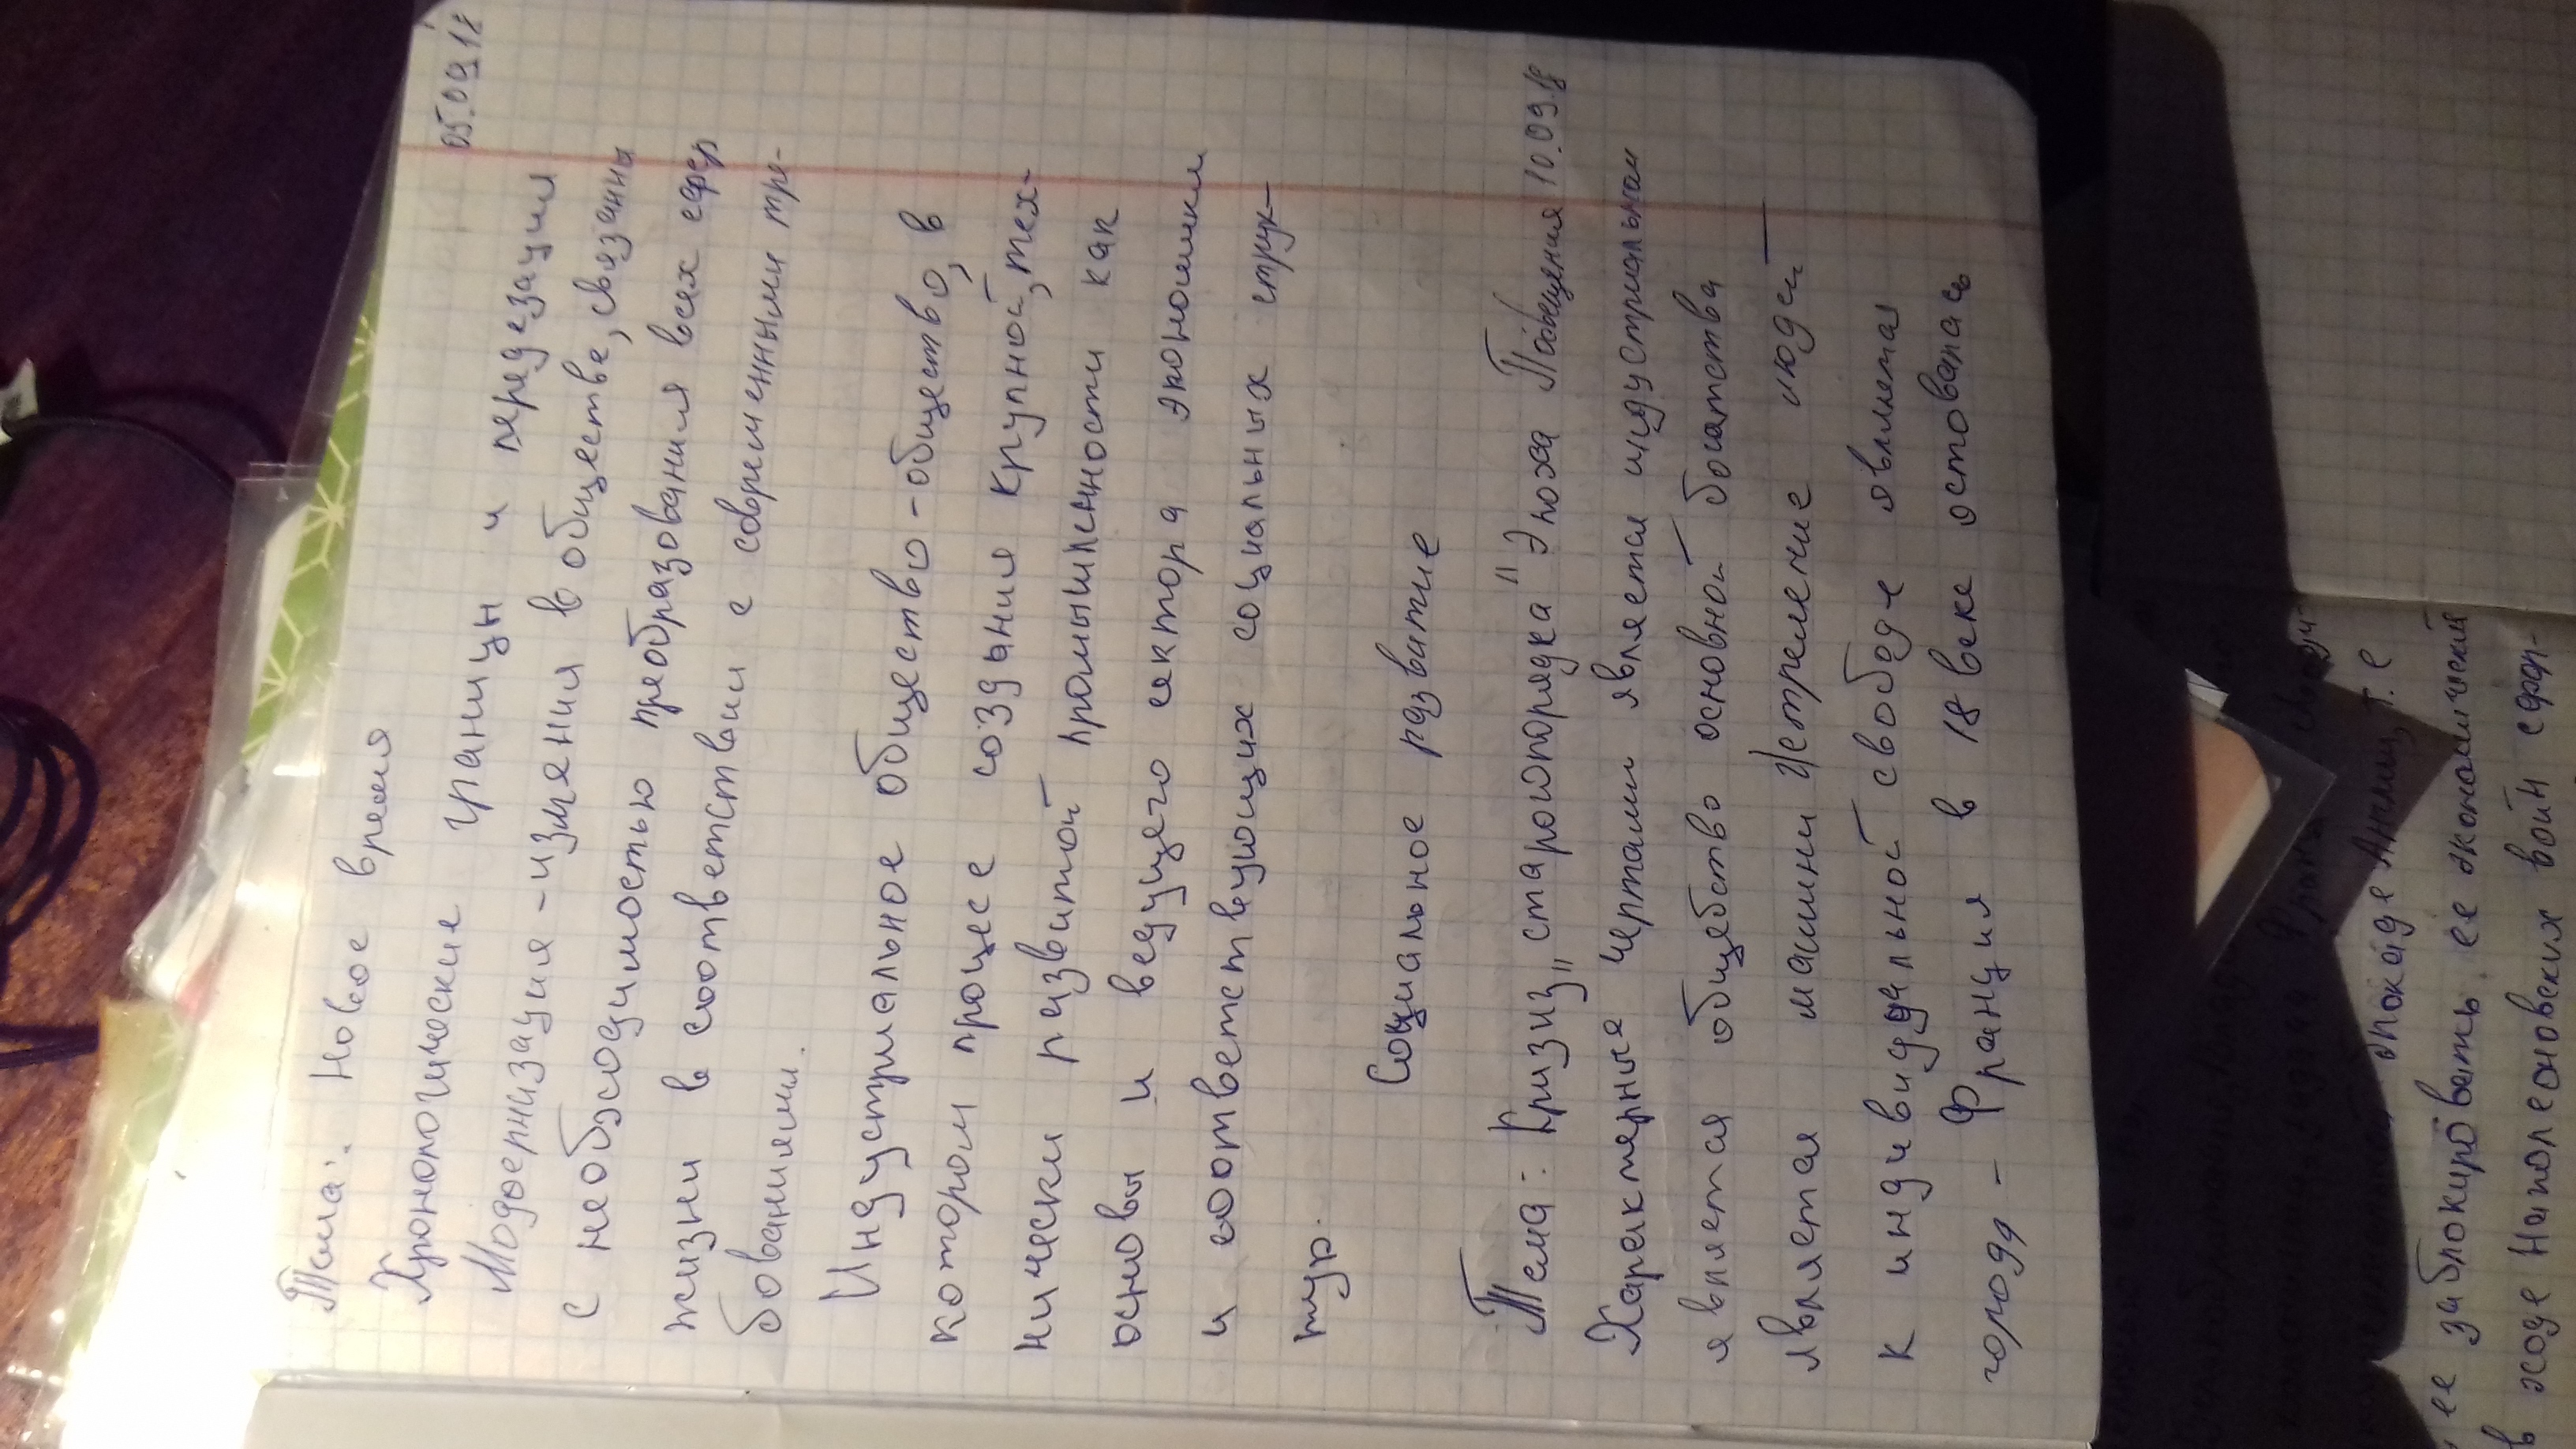 05.09.18
Тема: Новое время
Хронологические границы и передезация
Модоернизация - измения в обществе, связанны
с необходимостью преобразования всех сфер
жизни в соответствии с современными тре-
бованиями.
Индустриальное общество - общество, в
котором процесс создания крупной, тех-
нически развитой промышленности как
основы и ведущего сектора экономики
и соответствующих социальных струк-
тур.
Социальное развитие
Тема: Кризиз „старойпорядка" Эпоха 10.09.18
Характерные чертами является индустриальном
является общебство основной богатства
является машини Истремление людей
к индивидуальной свободе являетая
голода - Франция в 18 веке остовалась
блокаде Англии, т.е
ее заблокировать ее экономический
в ходе Наполеоновских войн